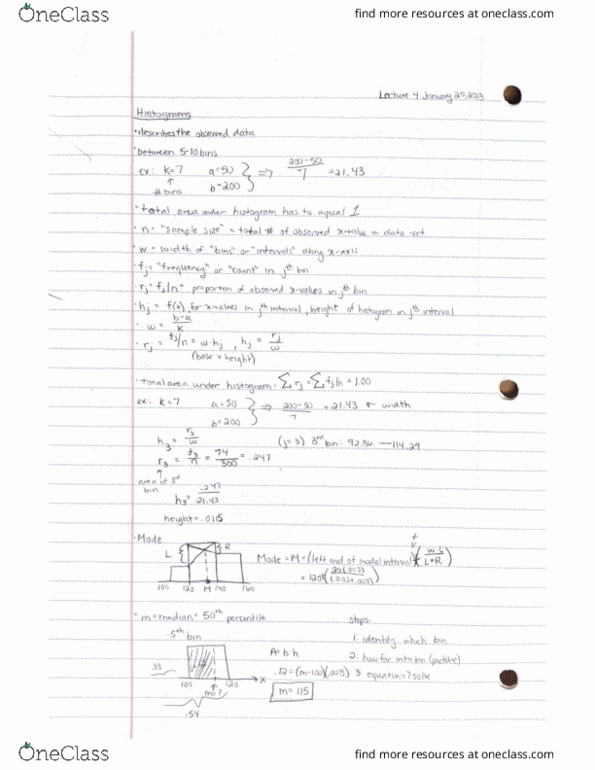 OneClass
find more resources at oneclass.com
Lecture 4 January 25, 2013
Histograms
• describes the observed data
• between 5-10 bins
ex: k=7 a=50 } ⇒ 200-50 / 7 = 21.43
↑ b=200
# bins
• total area under histogram has to equal 1
• n = "sample size" = total # of observed x-value in data-set
• w = width of "bins" or "intervals" along x-axis
• fj = "frequency" or "count" in jth bin
• rj = fj/n = proportion of observed x-values in jth bin
• hj = f(x), for x-values in jth interval, height of histogram in jth interval
• w = b-a / k
• rj = fj/n = w·hj , hj = rj / w
(base x height)
• total area under histogram = ∑ rj = ∑ fj/n = 1.00
ex: k=7 a=50 } ⇒ 200-50 / 7 = 21.43 ← width
b=200
h3 = r3 / w (j=3) 3rd bin: 92.86 — 114.29
r3 = f3 / n = 74 / 300 = .247
↑
area of 3rd bin
h3 = .247 / 21.43
height = .0115
• Mode
L R
Mode = M = (left end of modal interval) + (w·L / L+R)
100 120 M 140 160
• m = median = 50th percentile
steps
.5th bin
1. identify which bin
A = b·h
2. draw for in bin (picture)
.33
.12 = (m-100)(.008)
3. equation → solve
100 m=? 120 x
m = 115
.54
OneClass
find more resources at oneclass.com